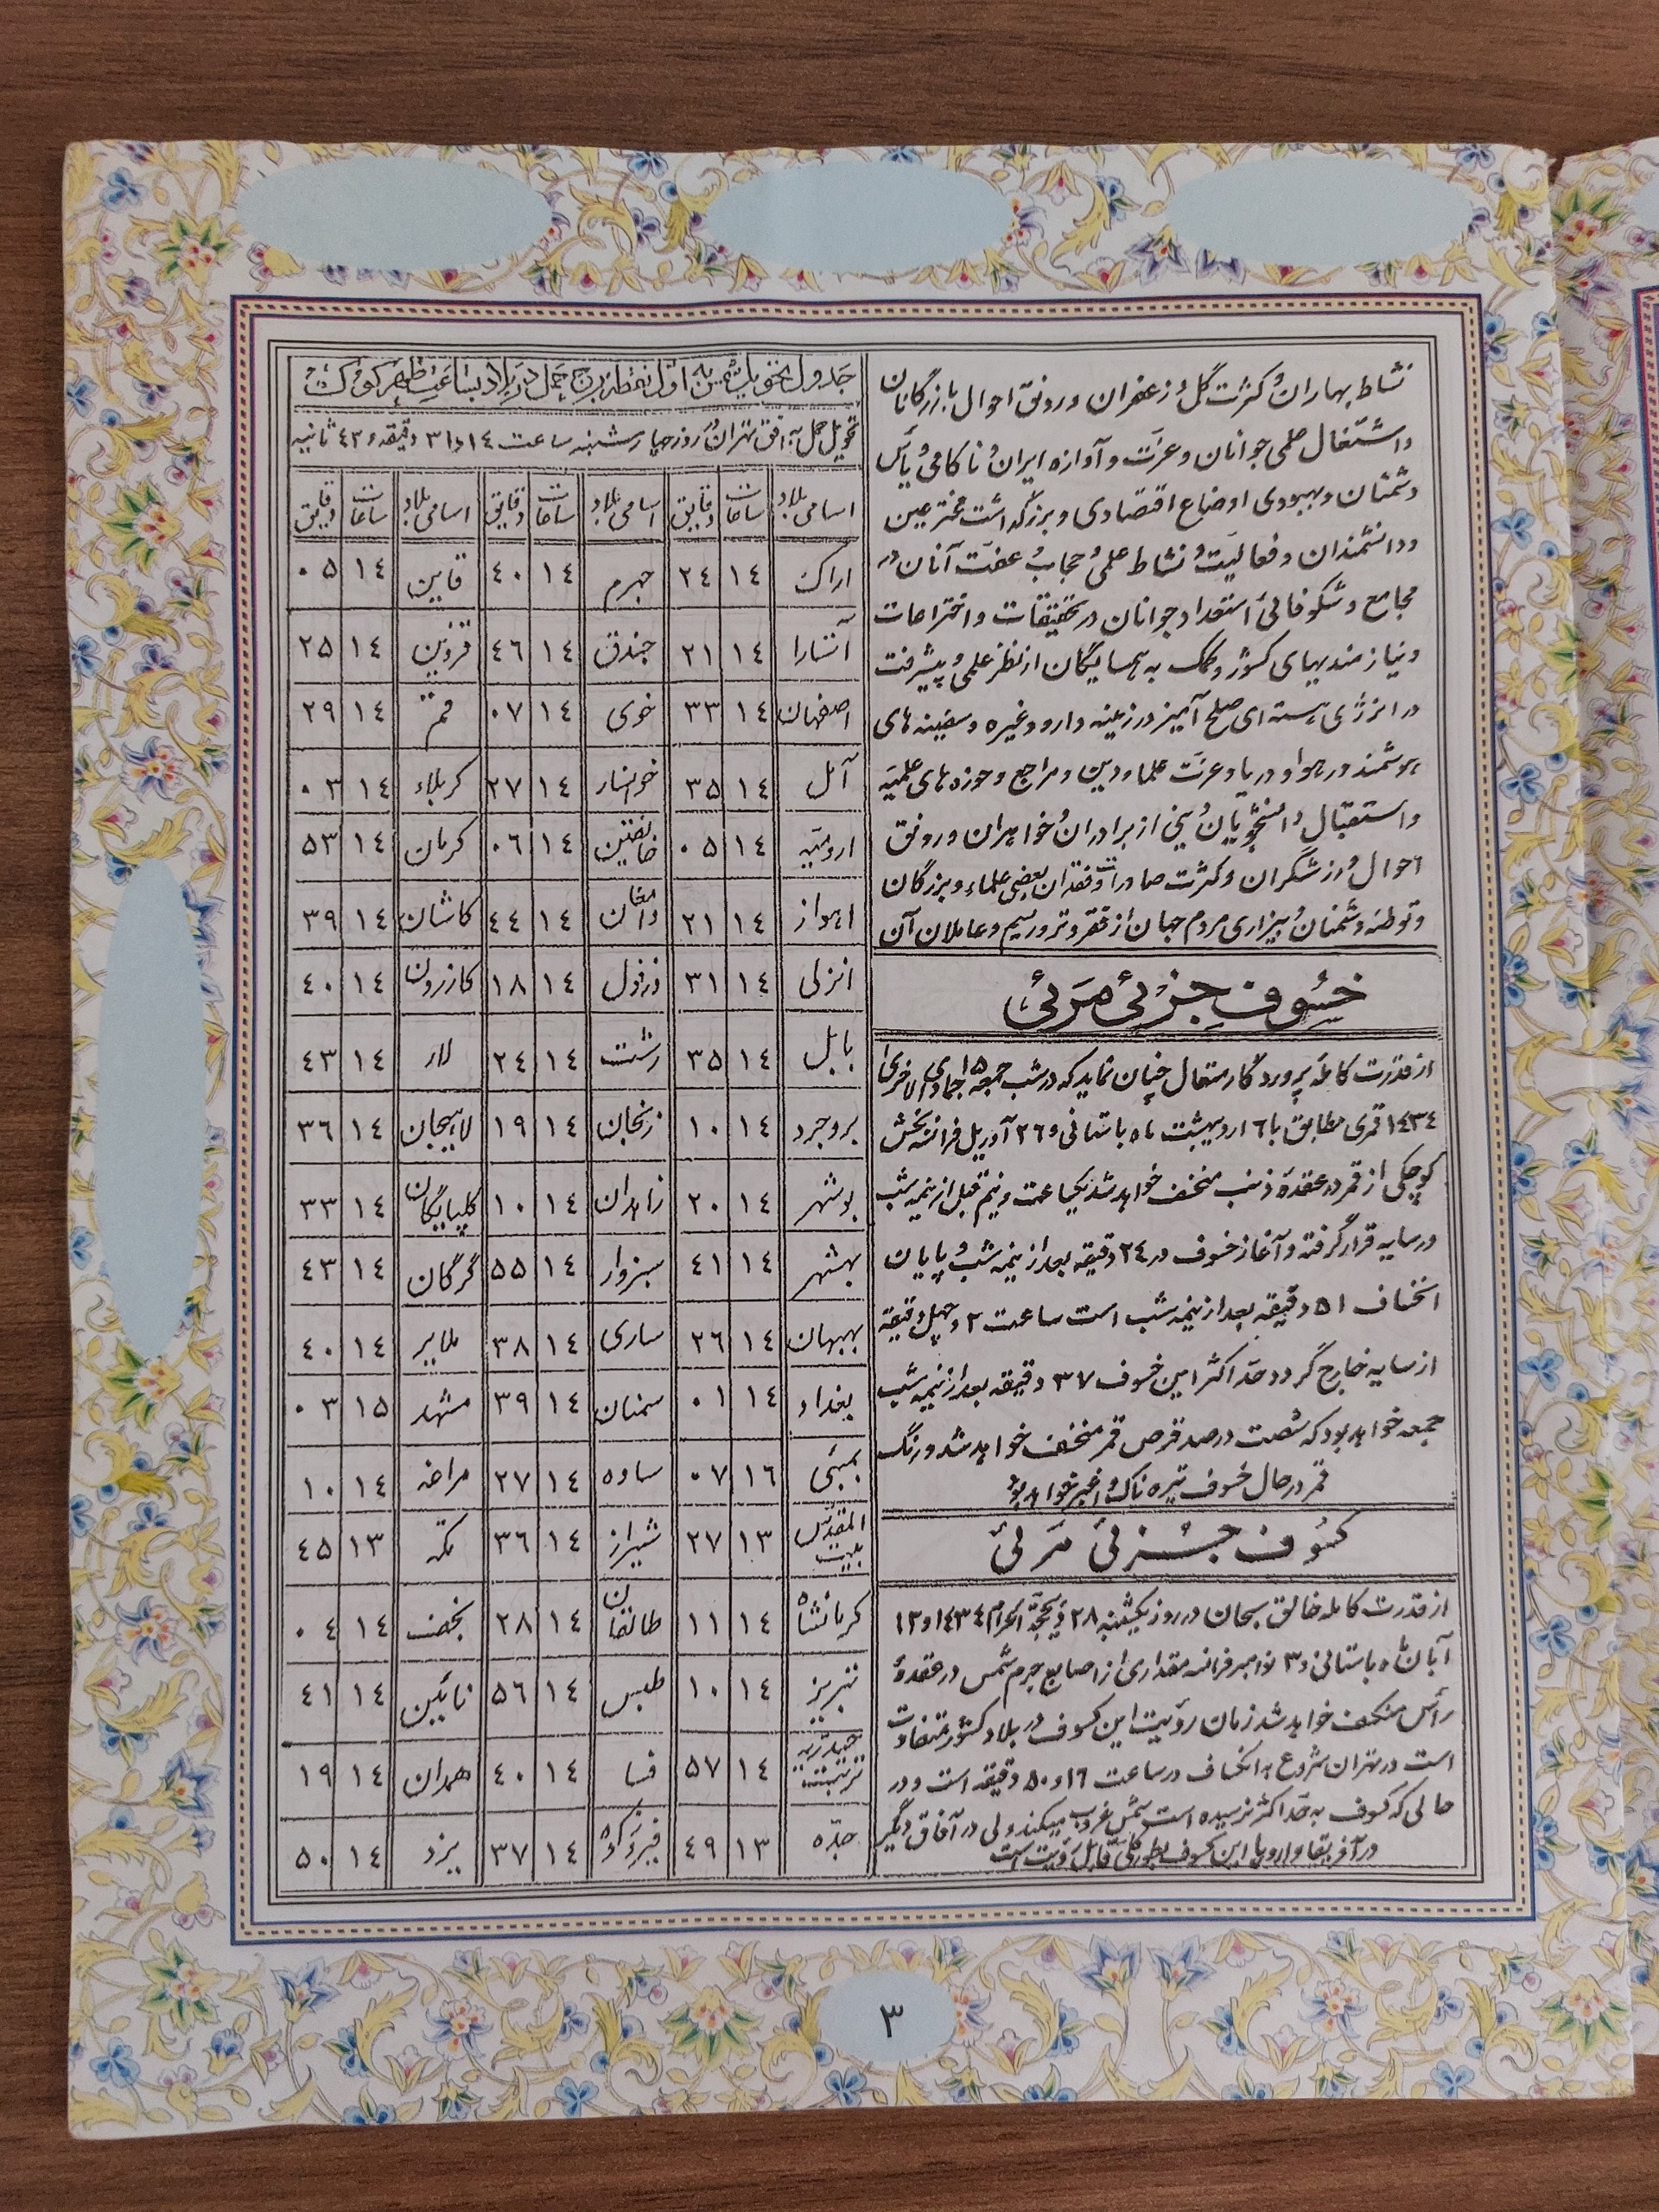 نشاط بهاران و کثرت گل و زعفران و رونق احوال بازرگانان
و اشتغال علمی جوانان و عزت و آوازه ایران و ناکامی و یأس
دشمنان و بهبودی اوضاع اقتصادی و بزرگداشت مخترعین
و دانشمندان و فعالیت و نشاط علمی و حجاب و عفت آنان در
مجامع و شکوفائی استعداد جوانان در تحقیقات و اختراعات
و نیازمندیهای کشور و کمک به همسایگان از نظر علمی و پیشرفت
در انرژی هسته ای صلح آمیز در زمینه دارو و غیره و سفینه های
هوشمند در هوا و دریا و عزت علماء دین و مراجع و حوزه های علمیه
و استقبال دانشجویان دینی از برادران و خواهران و رونق
احوال ورزشگران و کثرت صادرات و فقدان بعضی علماء و بزرگان
و توطئه دشمنان و بیزاری مردم جهان از فقر و تروریسم و عاملان آن
خسوف جزئی مرئی
از قدرت کامله پروردگار متعال چنان نماید که در شب جمعه ۱۵ جمادی الاخری
۱۴۳۴ قمری مطابق با ۶ اردیبهشت ماه باستانی و ۲۶ آوریل فرانسه بخش
کوچکی از قمر در عقده ذنب منخسف خواهد شد یکساعت و نیم قبل از نیمه شب
در سایه قرار گرفته و آغاز خسوف در ۲۴ دقیقه بعد از نیمه شب و پایان
انخساف ۵۱ دقیقه بعد از نیمه شب است ساعت ۲ و چهل دقیقه
از سایه خارج گردد حد اکثر این خسوف ۳۷ دقیقه بعد از نیمه شب
جمعه خواهد بود که شصت درصد قرص قمر منخسف خواهد شد و رنگ
قمر در حال خسوف تیره ناک و اغبر خواهد بود
کسوف جزئی مرئی
از قدرت کامله خالق سبحان در روز یکشنبه ۲۸ ذیحجة الحرام ۱۴۳۴ و ۱۲
آبان ماه باستانی و ۳ نوامبر فرانسه مقداری از اصابع جرم شمس در عقده
رأس منکسف خواهد شد زمان رؤیت این کسوف در بلاد کشور متفاوت
است در تهران شروع به انکساف در ساعت ۱۶ و ۵۰ دقیقه است و در
حالی که کسوف به حد اکثر نرسیده است شمس غروب میکند ولی در آفاق دیگر
در آفریقا و اروپا این کسوف بطور کلی قابل رؤیت است
جدول تحویل شمس به اول نقطه برج حمل در بلاد بساعت ظهر کوک
تحویل حمل به افق تهران روز چهارشنبه ساعت ۱۴ و ۳۱ دقیقه و ۴۲ ثانیه
اسامی بلاد ساعات دقایق اسامی بلاد ساعات دقایق اسامی بلاد ساعات دقایق
اراک ۱۴ ۲۴ جهرم ۱۴ ۴۰ قاین ۱۴ ۰۵
آستارا ۱۴ ۲۱ جندق ۱۴ ۴۶ قزوین ۱۴ ۲۵
اصفهان ۱۴ ۳۳ خوی ۱۴ ۰۷ قم ۱۴ ۲۹
آمل ۱۴ ۳۵ خوانسار ۱۴ ۲۷ کربلاء ۱۴ ۰۳
ارومیه ۱۴ ۰۵ خانقین ۱۴ ۰۶ کرمان ۱۴ ۵۳
اهواز ۱۴ ۲۱ دامغان ۱۴ ۴۴ کاشان ۱۴ ۳۹
انزلی ۱۴ ۳۱ دزفول ۱۴ ۱۸ کازرون ۱۴ ۴۰
بابل ۱۴ ۳۵ رشت ۱۴ ۲۴ لار ۱۴ ۴۳
بروجرد ۱۴ ۱۰ زنجان ۱۴ ۱۹ لاهیجان ۱۴ ۳۶
بوشهر ۱۴ ۲۰ زاهدان ۱۴ ۱۰ گلپایگان ۱۴ ۳۳
بهشهر ۱۴ ۴۱ سبزوار ۱۴ ۵۵ گرگان ۱۴ ۴۳
بهبهان ۱۴ ۲۶ ساری ۱۴ ۳۸ ملایر ۱۴ ۴۰
بغداد ۱۴ ۰۱ سمنان ۱۴ ۳۹ مشهد ۱۵ ۰۳
بمبئی ۱۶ ۰۷ ساوه ۱۴ ۲۷ مراغه ۱۴ ۱۰
بیت المقدس ۱۳ ۲۷ شیراز ۱۴ ۳۶ مکه ۱۳ ۴۵
کرمانشاه ۱۴ ۱۱ طالقان ۱۴ ۲۸ نجف ۱۴ ۰۴
تبریز ۱۴ ۱۰ طبس ۱۴ ۵۶ نائین ۱۴ ۴۱
تربت حیدریه ۱۴ ۵۷ فسا ۱۴ ۴۰ همدان ۱۴ ۱۹
جده ۱۳ ۴۹ فیروزکوه ۱۴ ۳۷ یزد ۱۴ ۵۰
۳